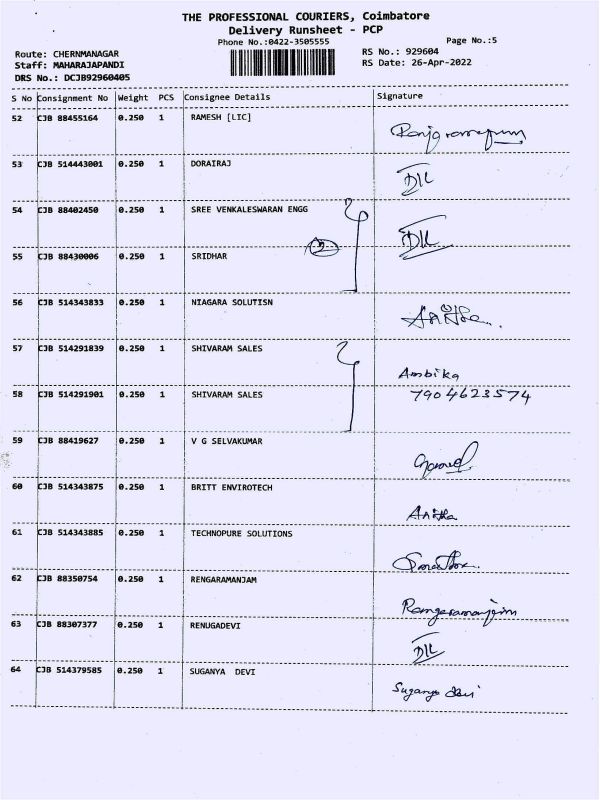 THE PROFESSIONAL COURIERS, Coimbatore
Delivery Runsheet - PCP
Phone No.:0422-3505555
Page No.:5
Route: CHERNMANAGAR
RS No.: 929604
Staff: MAHARAJAPANDI
RS Date: 26-Apr-2022
DRS No.: DCJB92960405
S No Consignment No Weight PCS Consignee Details Signature
52 CJB 88455164 0.250 1 RAMESH [LIC]
53 CJB 514443001 0.250 1 DORAIRAJ
54 CJB 88402450 0.250 1 SREE VENKALESWARAN ENGG
55 CJB 88430006 0.250 1 SRIDHAR
56 CJB 514343833 0.250 1 NIAGARA SOLUTISN
57 CJB 514291839 0.250 1 SHIVARAM SALES
Ambika
58 CJB 514291901 0.250 1 SHIVARAM SALES 7904623574
59 CJB 88419627 0.250 1 V G SELVAKUMAR
60 CJB 514343875 0.250 1 BRITT ENVIROTECH
Anitha
61 CJB 514343885 0.250 1 TECHNOPURE SOLUTIONS
62 CJB 88350754 0.250 1 RENGARAMANJAM
Rengaramanjam
63 CJB 88307377 0.250 1 RENUGADEVI
64 CJB 514379585 0.250 1 SUGANYA DEVI
Suganya devi